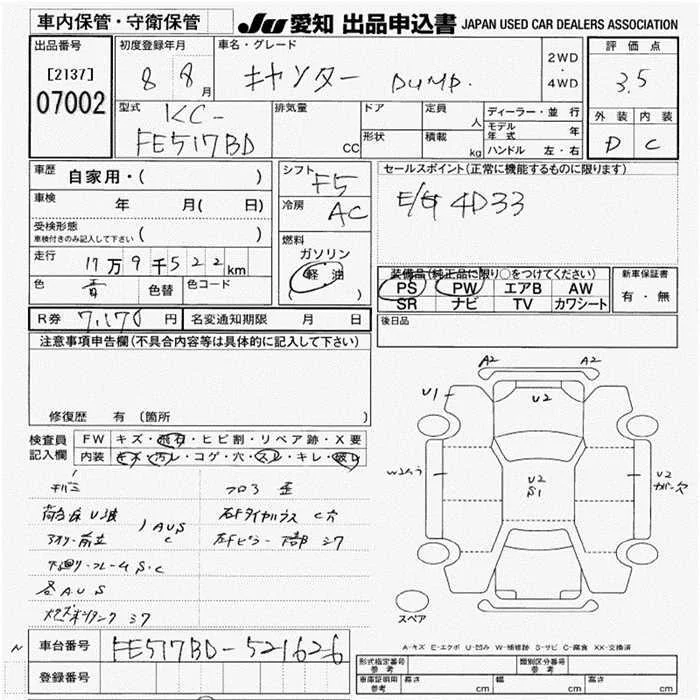 車内保管・守衛保管
JU 愛知 出品申込書 JAPAN USED CAR DEALERS ASSOCIATION
出品番号
[2137]
07002
初度登録年月
8 8月
車名・グレード
キャンター DUMP.
2WD
・
4WD
評価点
3.5
外装 内装
D C
型式
KC-
FE517BD
排気量
cc
ドア
形状
定員
人
積載
kg
ディーラー・並行
モデル年式 年
ハンドル 左・右
車歴
自家用・( )
車検 年 月( 日)
受検形態
車検付きのみ記入して下さい ( )
走行
17万9千522km
色 青 色替 色コード
シフト
F5
冷房
AC
燃料
ガソリン
軽油
( )
セールスポイント(正常に機能するものに限ります)
E/G 4D33
装備品(純正品に限り○をつけてください)
PS PW エアB AW
SR ナビ TV カワシート
新車保証書
有・無
後日品
R券 7,170 円 名変通知期限 月 日
注意事項申告欄(不具合内容等は具体的に記入して下さい)
修復歴 有 (箇所 )
検査員
記入欄
FW キズ・飛石・ヒビ割・リペア跡・X要
内装 キズ・汚レ・コゲ・穴・スレ・キレ・破レ
荷台床U波
AUS
C
下廻リ・フレームS・C
各AUS
フロア
A2 A2
U1 U2
U2
S1
U2
スペア
A-キズ E-エクボ U-凹み W-補修跡 S-サビ C-腐食 XX-交換済
N
車台番号 FE517BD-521626
登録番号
型式指定番号
参考
類別区分番号
参考
車庫証明用
参考
長さ cm 幅 cm 高さ cm